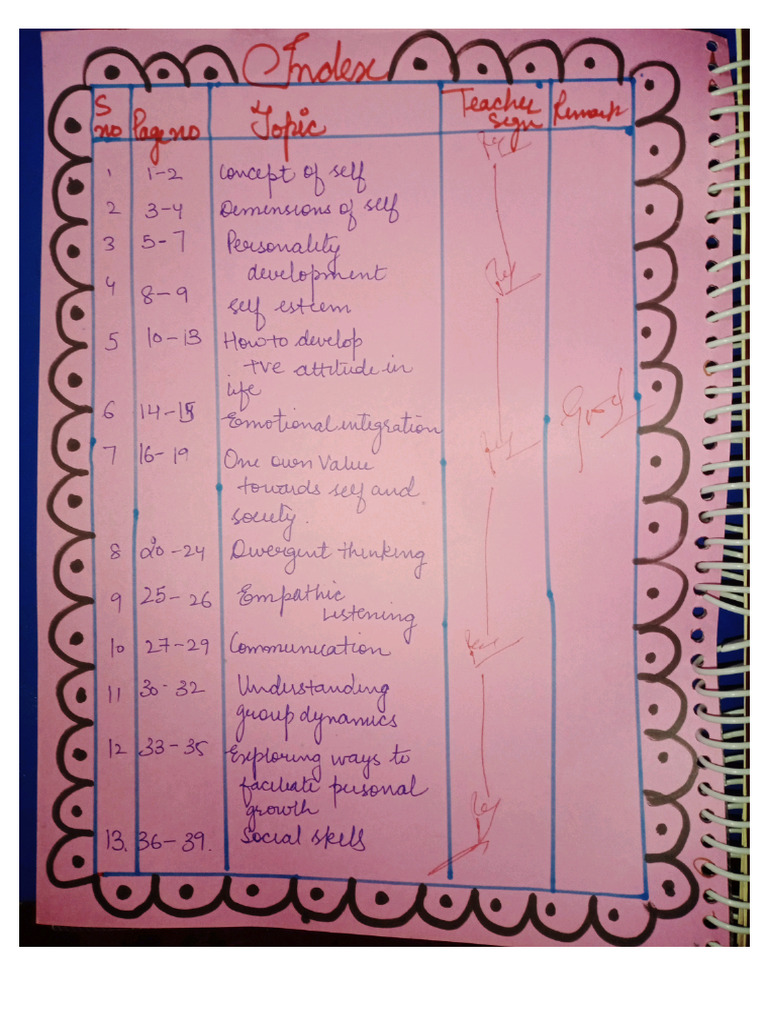 Index
S no Page no Topic Teacher Sign Remark
1 1-2 Concept of self
2 3-4 Demensions of self
3 5-7 Personality
development
4 8-9 self esteem
5 10-13 How to develop
+ve attitude in
life
6 14-15 Emotional integration
7 16-19 One own Value
towards self and
society.
8 20-24 Divergent thinking
9 25-26 Empathic
Listening
10 27-29 Communication
11 30-32 Understanding
group dynamics
12 33-35 Exploring ways to
faciliate personal
growth
13. 36-39. Social skills
Good